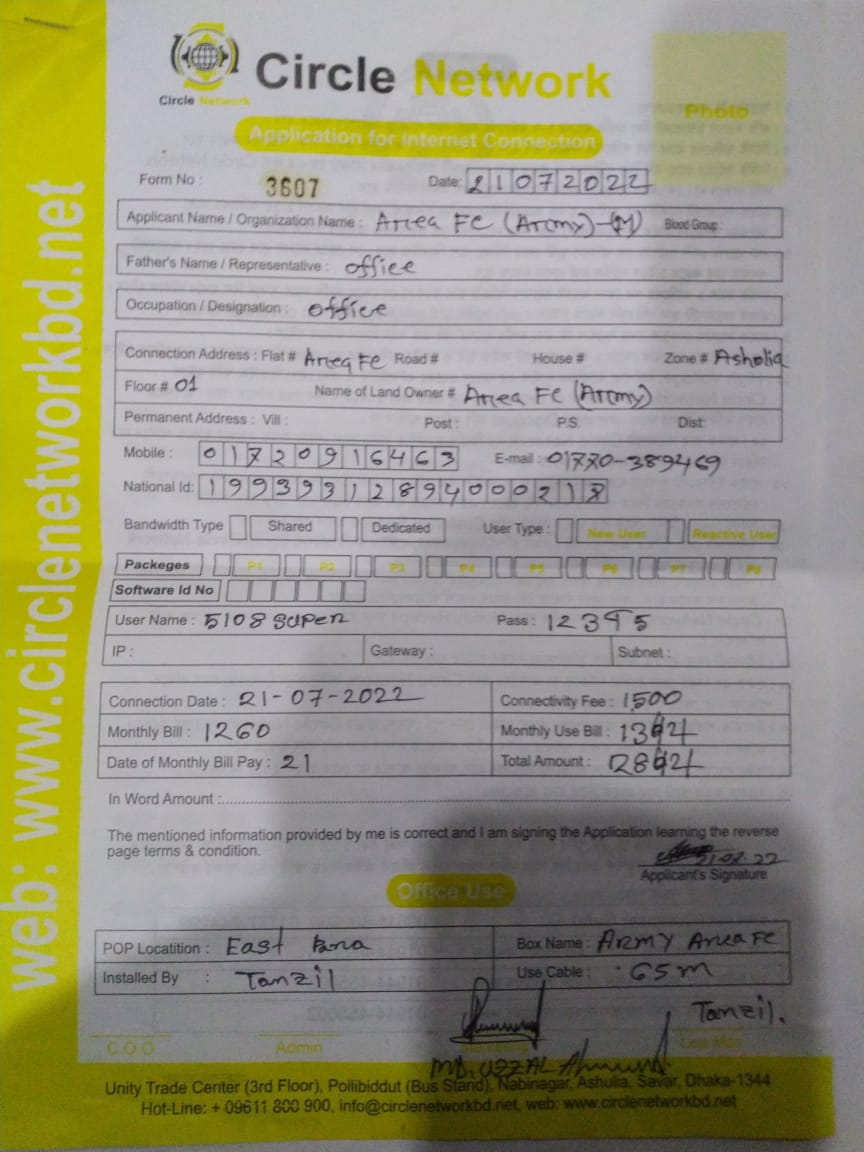 Circle Network
Circle Network
Photo
Application for Internet Connection
Form No : 3607 Date: 21072022
Applicant Name / Organization Name : Area FC (Army)-(M) Blood Group :
Father's Name / Representative : office
Occupation / Designation : office
Connection Address : Flat # Area FC Road # House # Zone # Asholia
Floor # 01 Name of Land Owner # Area FC (Army)
Permanent Address : Vill : Post : P.S. Dist:
Mobile : 01720916463 E-mail : 01770-389469
National Id: 19939312894000217
Bandwidth Type Shared Dedicated User Type : New User Reactive User
Packeges P1 P2 P3 P4 P5 P6 P7 P8
Software Id No
User Name : 5108 super Pass : 12345
IP : Gateway : Subnet :
Connection Date : 21-07-2022 Connectivity Fee : 1500
Monthly Bill : 1260 Monthly Use Bill :
Date of Monthly Bill Pay : 21 Total Amount :
In Word Amount :
The mentioned information provided by me is correct and I am signing the Application learning the reverse
page terms & condition.
Applicant's Signature
Office Use
POP Locatition : East Box Name : ARMY Area FC
Installed By : Tanzil Use Cable : 65m
Tanzil.
C.O.O Admin
MD. UZZAL Ahmmed
Unity Trade Center (3rd Floor), Pollibiddut (Bus Stand), Nabinagar, Ashulia, Savar, Dhaka-1344
Hot-Line: + 09611 800 900, info@circlenetworkbd.net, web: www.circlenetworkbd.net
web: www.circlenetworkbd.net